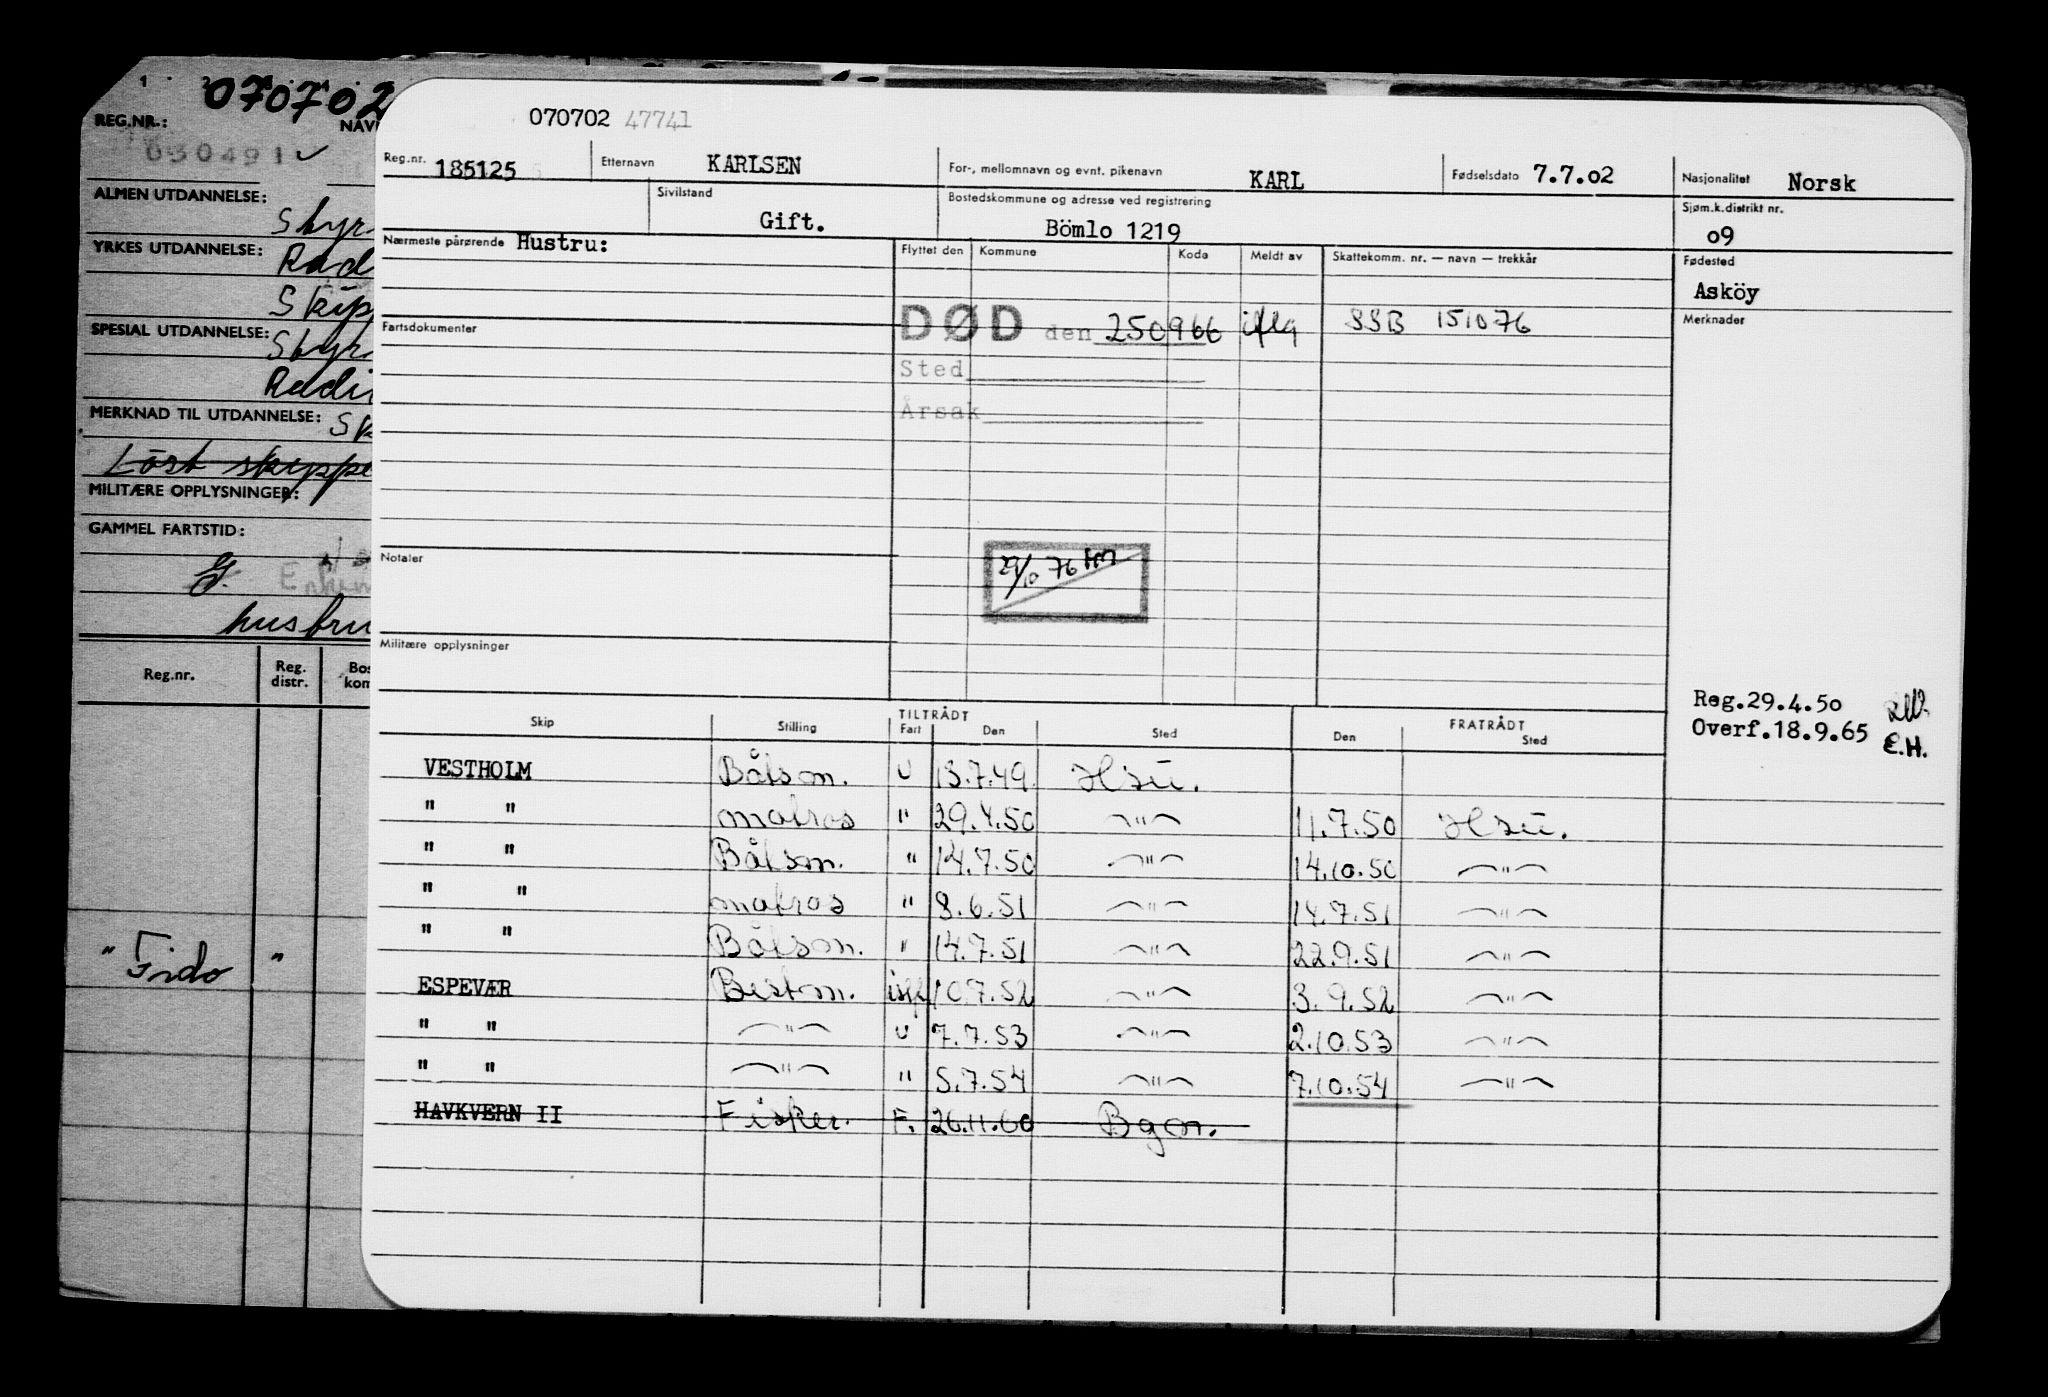 070702
REG.NR.:
030491 ✓
ALMEN UTDANNELSE:
YRKES UTDANNELSE:
SPESIAL UTDANNELSE:
MERKNAD TIL UTDANNELSE:
MILITÆRE OPPLYSNINGER:
GAMMEL FARTSTID:
Reg.nr. Reg. distr.
" Fido "
070702 47741
Reg.nr. 185125 Etternavn KARLSEN For-, mellomnavn og evnt. pikenavn KARL Fødselsdato 7.7.02 Nasjonalitet Norsk
Sivilstand Gift. Bostedskommune og adresse ved registrering Bömlo 1219 Sjøm.k.distrikt nr. 09
Nærmeste pårørende Hustru: Flyttet den Kommune Kode Meldt av Skattekomm. nr. — navn — trekkår Fødested
Asköy
Fartsdokumenter DØD den 250966 iflg SSB 151076 Merknader
Sted
Årsak
Notater 29/10 76 HM
Militære opplysninger
Reg.29.4.50
Overf.18.9.65 E.H.
Skip Stilling TILTRÅDT Fart Den Sted FRATRÅDT Den Sted
VESTHOLM Båtsm. U 13.7.49. Hsu.
" " matros " 29.4.50 —"— 11.7.50 Hsu.
" " Båtsm. " 14.7.50 —"— 14.10.50 —"—
" " matros " 8.6.51 —"— 14.7.51 —"—
" " Båtsm. " 14.7.51 —"— 22.9.51 —"—
ESPEVÆR Bestm. 10.7.52 —"— 3.9.52 —"—
" " —"— U 7.7.53 —"— 2.10.53 —"—
" " —"— " 5.7.54 —"— 7.10.54 —"—
HAVKVERN II Fisker. F. 26.11.60 Bgn.